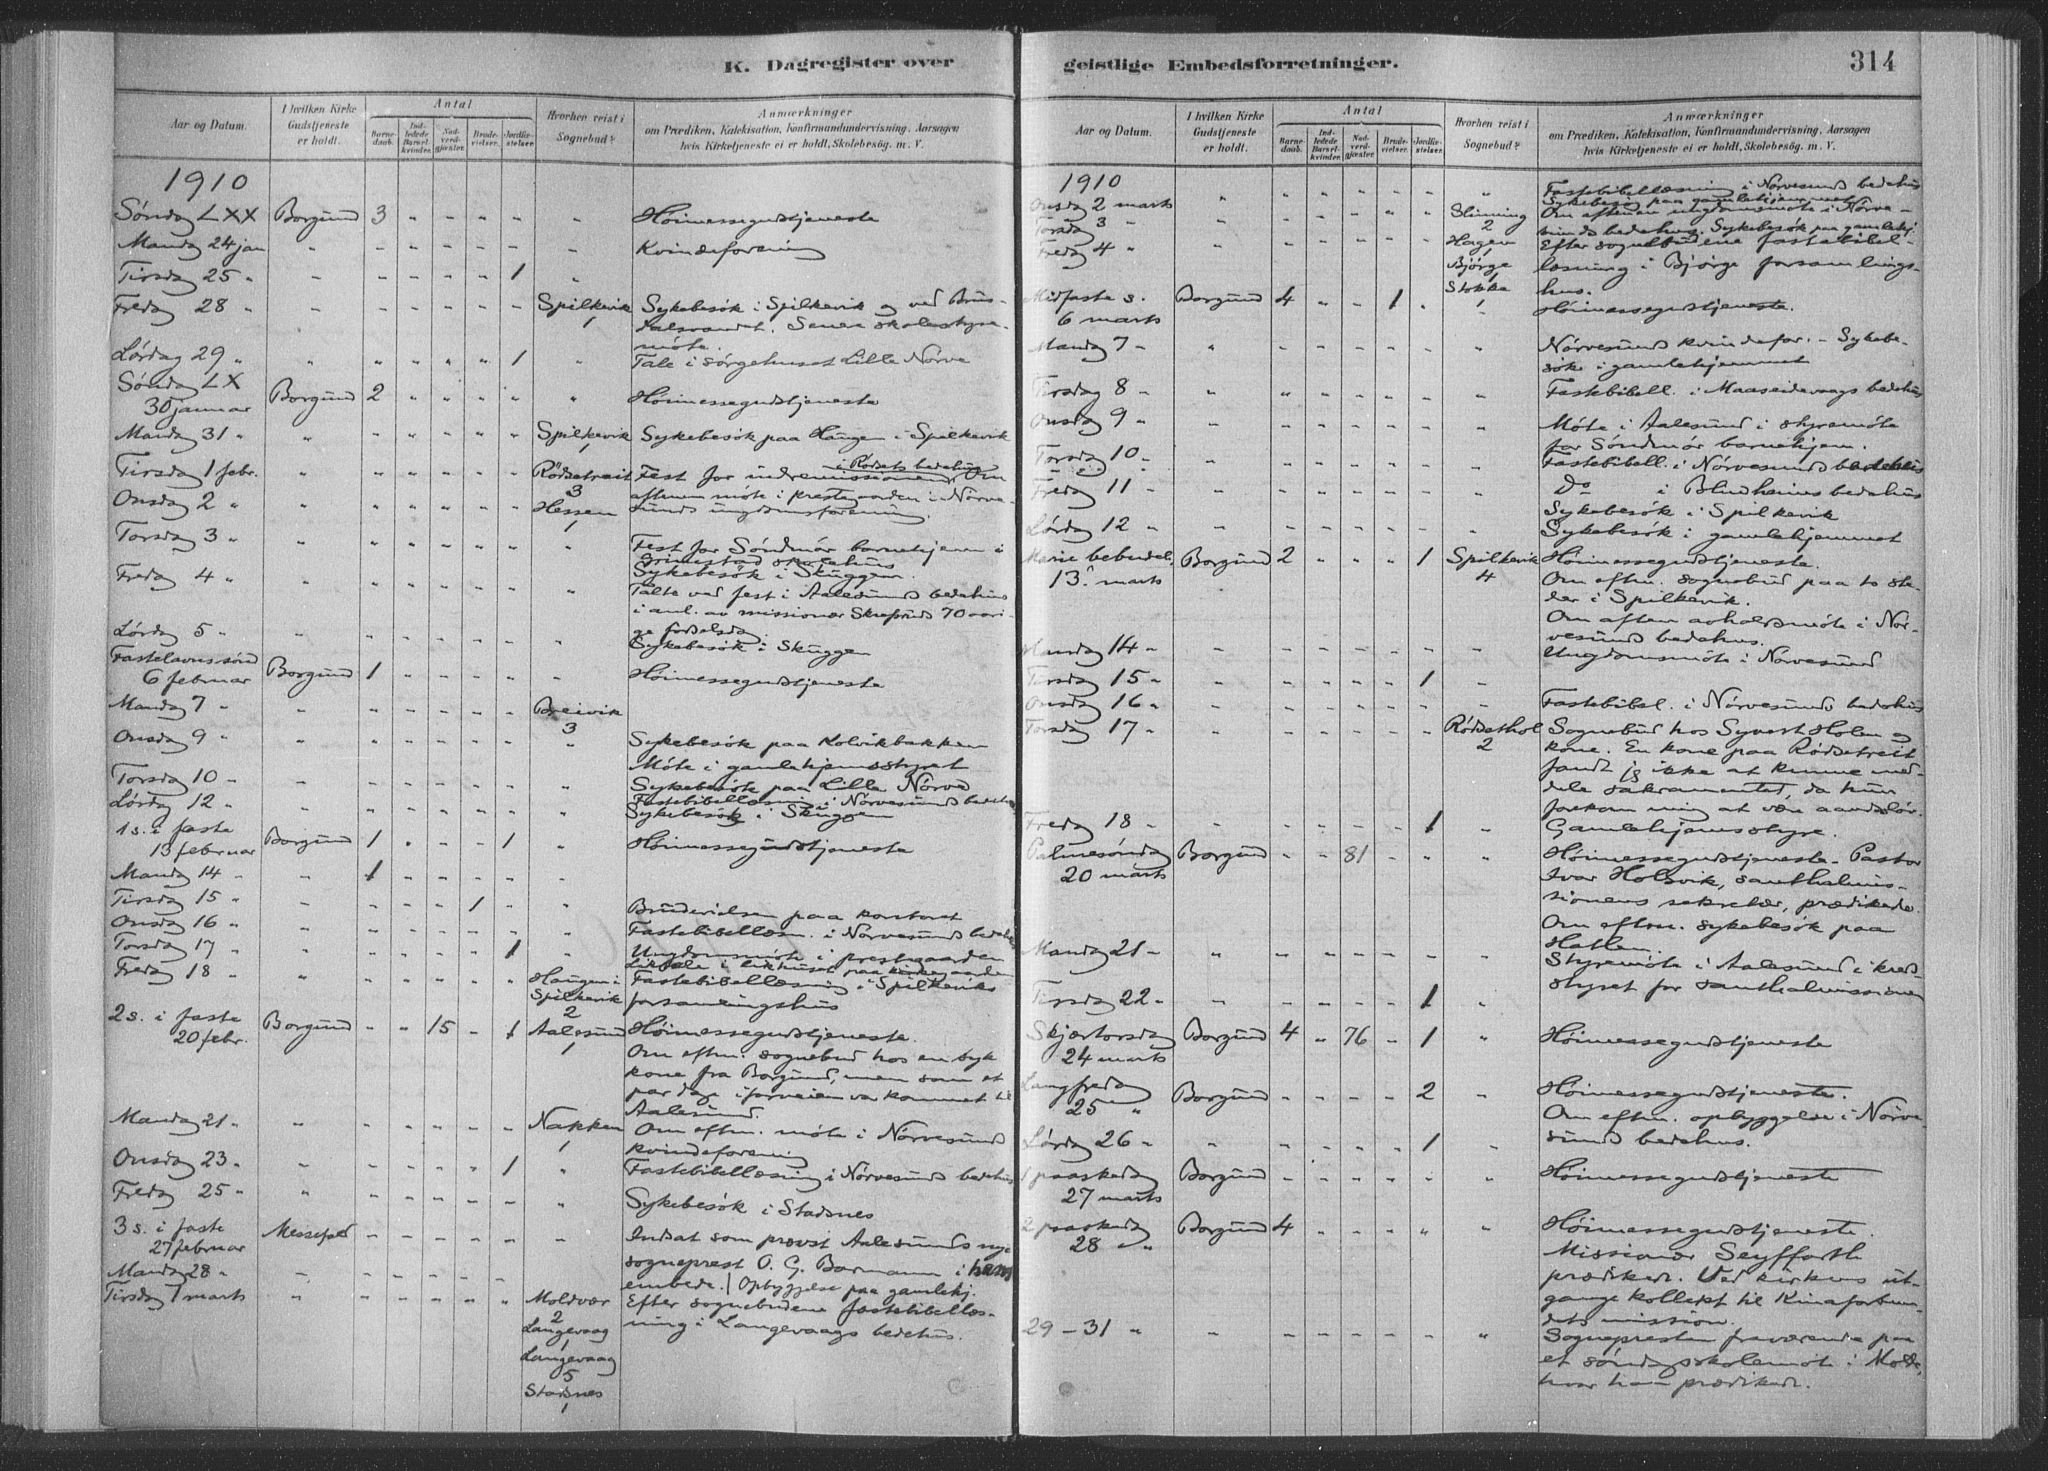 K. Dagregister over
Aar og Datum.
I hvilken Kirke Gudstjeneste er holdt.
Antal
Barnedaab.
Indledede Barselkvinder.
Nadverdgjæster.
Brudevielser.
Jordfæstelser.
Hvorhen reist i Sognebud?
Anmærkninger
om Prædiken, Katekisation, Konfirmandundervisning, Aarsagen
hvis Kirketjeneste ei er holdt, Skolebesög, m. V.
1910
Søndag LXX Borgund 3 " " " " " Høimessegudstjeneste
Mandag 24 jan " - - - - - - Kvindeforening
Tirsdag 25 " - - - - - 1 "
Fredag 28 " - - - - - - Spilkevik 1 Sykebesök i Spilkevik og ved Brus-
dalsvandet. Senere skolestyre-
möte.
Lördag 29 " " " " " " 1 " Tale i sörgehuset Lille Nörve
Söndag LX
30 januar Borgund 2 " " " " " Høimessegudstjeneste
Mandag 31 " " - - - - - Spilkevik 1 Sykebesök paa Haugen i Spilkevik
Tirsdag 1 febr. " " " " " " Rödsetreit 3 Fest for indremissionen i Rödsets bedehus Om
aftenen möte i prestegaarden i Nörve-
sunds ungdomsforening.
Onsdag 2 " " " - - - - Hessen 1
Torsdag 3 " - " " " - - " Fest for Söndmör barnehjem i
Grimestad skolehus
Sykebesök i Skuggen
Fredag 4 " " " " " " " " Talte ved fest i Aalesunds bedehus
i anl. av missionær Skrefsruds 70 aari-
ge födselsdag
Lördag 5 " " - - - - - " Sykebesök i Skuggen
Fastelavnssönd
6 februar Borgund 1 - - - - " Høimessegudstjeneste
Mandag 7 " " - - - - - Breivik 3
Onsdag 9 " - - - - - - " Sykebesök paa Kolvikbakken
Möte i gamlehjemsstyret
Torsdag 10 " - - - - - - " Sykebesök paa Lille Nörve
Fastebibellæsning i Nörvesunds bedehus
Lördag 12 " " - - - - - " Sykebesök i Skuggen
1 s. i faste
13 februar Borgund 1 . - - 1 " Høimessegudstjeneste
Mandag 14 " " 1 - - - -
Tirsdag 15 " " - - - 1 - " Brudevielsen paa kontoret
Onsdag 16 " - - - - - - " Fastebibellæsn. i Nörvesunds bedehus
Torsdag 17 " " - - - - 1 " Ungdomsmöte i prestegaarden
Liktale i likhuset paa kirkegaarden
Fredag 18 " " - - - - - Haugen i Spilkevik 2 Fastebibellæsning i Spilkeviks
forsamlingshus
2 s. i faste
20 febr. Borgund - - 15 - 1 Aalesund 1 Høimessegudstjeneste.
Om eftm. sognebud hos en syk
kone fra Borgund, men som et
par dage i forveien var kommet til
Aalesund.
Mandag 21 " " - - - - - Nakken 1 Om eftm. möte i Nörvesund
kvindeforening
Onsdag 23 " " - - - - 1 " Fastebibellæsning i Nörvesunds bedehus
Fredag 25 " " - - - - - " Sykebesök i Stadsnes
3 s. i faste
27 februar Messefald - - - - - " Indsat som provst Aalesunds nye
sogneprest O. G. Barmann i hans
embede.
Mandag 28 " - - - - - - Opbyggelse paa gamlehj.
Tirsdag 1 marts " " " " " " Moldvær 2 Efter sognebudene fastebibellæs-
ning i Langevaags bedehus.
Langevaag 1
Langevaag 5
Stadsnes 1
geistlige Embedsforretninger.
314
Aar og Datum.
I hvilken Kirke Gudstjeneste er holdt.
Antal
Barnedaab.
Indledede Barselkvinder.
Nadverdgjæster.
Brudevielser.
Jordfæstelser.
Hvorhen reist i Sognebud?
Anmærkninger
om Prædiken, Katekisation, Konfirmandundervisning, Aarsagen
hvis Kirketjeneste ei er holdt, Skolebesög, m. V.
1910
Onsdag 2 marts " - - - - - " Fastebibellæsning i Nörvesunds bedehus
Sykebesög paa gamlehjemmet
Torsdag 3 " " - - - - - Slinning 2 Om aftenen ungdomsmöte i Nörve-
sunds bedehus. Sykebesök paa gamlehj.
Fredag 4 " Hagen 1 Efter sognebudene fastebibel-
læsning i Björge forsamlings-
hus.
Björge 1
Stokke 1
Midfaste s.
6 marts Borgund 4 " " 1 . Høimessegudstjeneste.
Mandag 7 " " - - - - - - Nörvesunds kvindefor. - Sykebe-
sök i gamlehjemmet
Tirsdag 8 " " " " - - - " Fastebibell. i Maaseidevaags bedehus
Onsdag 9 " " - - - - - " Möte i Aalesund i styremöte
for Söndmör barnehjem.
Torsdag 10 " " - - - - - " Fastebibell. i Nörvesunds bedehus
Fredag 11 " " - - - - - " Do i Blindheims bedehus
Sykebesök i Spilkevik
Lördag 12 " " - - - - - " Sykebesök i gamlehjemmet
Marie bebudel.
13. marts Borgund 2 " " " 1 Spilkevik 4 Høimessegudstjeneste.
Om eftm. sognebud paa to ste-
der i Spilkevik.
Om aften avholdsmöte i Nör-
vesunds bedehus.
Mandag 14 " " - - - - - - Ungdomsmöte i Nörvesund
Tirsdag 15 " " - - - - 1 -
Onsdag 16 " " - - - - - - Fastebibel. i Nörvesunds bedehus
Torsdag 17 " " - - - - - Rödsethol 2 Sognebud hos Syvert Holen og
kone. En kone paa Rödsetreit
fandt jeg ikke at kunne med-
dele sakramentet, da hun
forekom mig at være aandslöv.
Fredag 18 " 1 " Gamlehjemsstyre.
Palmesöndag
20 marts Borgund - - 81 - " " Høimessegudstjeneste. Pastor
Ivar Holsvik, santhalmis-
sionens sekretær, prædikede.
Om eftm. sykebesök paa
Hatlen.
Mandag 21 - " - - - - - " Styremöte i Aalesund i kred-
styret for santhalmissionen
Tirsdag 22 - " - - - - 1 "
Skjærtorsdag
24 marts Borgund 4 " 76 - 1 " Høimessegudstjeneste
Langfredag
25 " Borgund - - - - 2 " Høimessegudstjeneste.
Om eftm. opbyggelse i Nörve-
sunds bedehus.
Lördag 26 " " - - - - 1 "
1 paaskedag
27 marts Borgund - - - - - " Høimessegudstjeneste
2 paaskedag
28 " Borgund 4 - - - " " Høimessegudstjeneste.
Missionær Seyffarth
prædiket. Ved kirkens ut-
gange kollekt til Kinaforbun-
dets mission.
29 - 31 " " - - - - - " Sognepresten fraværende paa
et söndagsskolemöte i Molde,
hvor han prædiket.